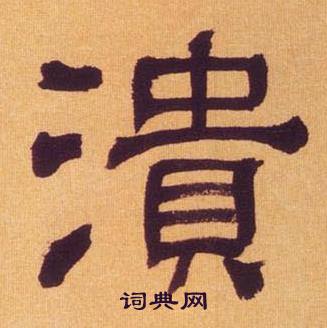 潰
词典网